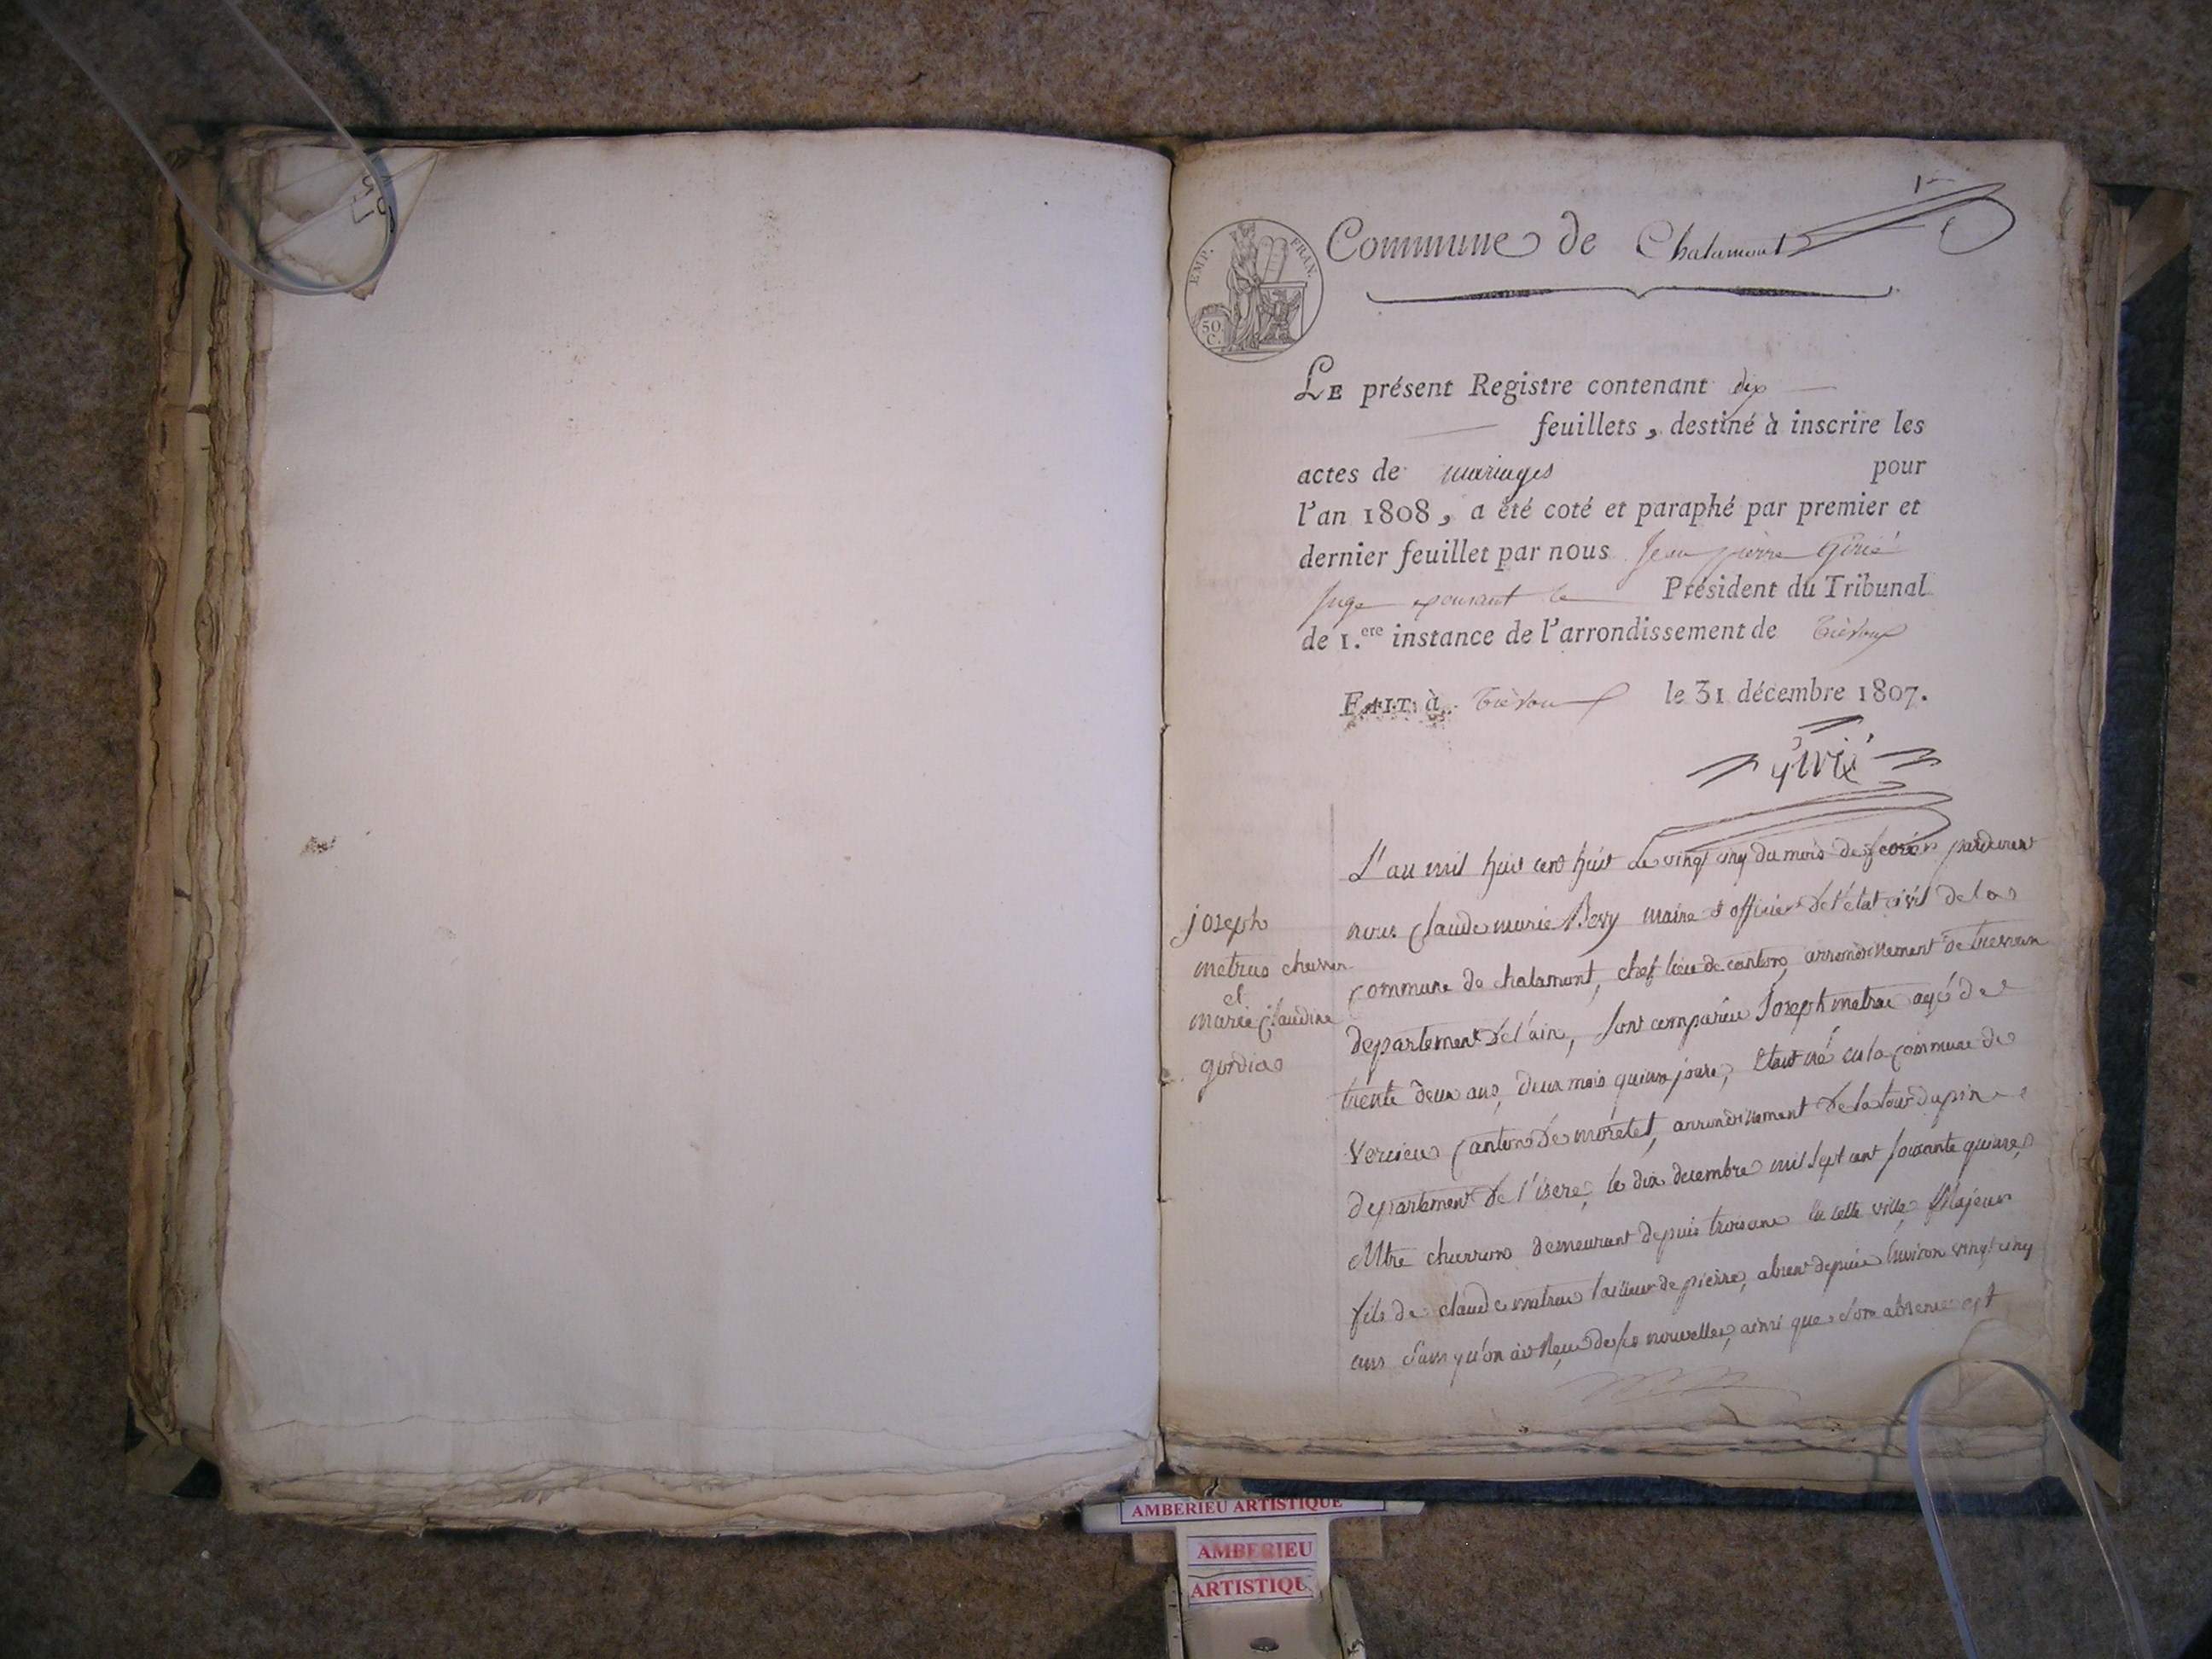 1
Commune de Chalamont
EMP. FRAN.
50 C.
LE présent Registre contenant dix
feuillets, destiné à inscrire les
actes de mariages pour
l'an 1808, a été coté et paraphé par premier et
dernier feuillet par nous Jean pierre Girié
juge exerçant le Président du Tribunal
de 1.ere instance de l'arrondissement de Trévoux
FAIT à Trévoux le 31 décembre 1807.
Girié
L'an mil huit cent huit Le vingt cinq du mois de fevrier pardevant
nous Claude marie maire & officier de l'état civil de la
commune de chalamont, chef lieu de canton, arrondissement de trevoux
departement de l'ain, sont comparüs Joseph metras agé de
trente deux ans, deux mois quinze jours, etant né en la commune de
Vercieu canton de morêtel, arrondissement de la tour dupin
departement de l'isere, le dix decembre mil sept cent soixante quinze,
Mtre charron demeurant depuis trois ans en cette ville, Majeur
fils de claude metras tailleur de pierre, absent depuis Environ vingt cinq
ans sans qu'on ait Reçu de ses nouvelles, ainsi que son absence est
joseph
metras charron
et
marie Claudine